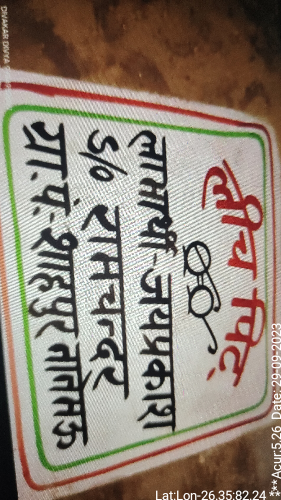 लीच पिट
लाभार्थी-जयप्रकाश
S/o रामचन्दर
ग्रा.पं.-शाहपुर नानसऊ
Lat:Lon-26.35:82.24
***Acur:5.26 Date: 29-09-2023